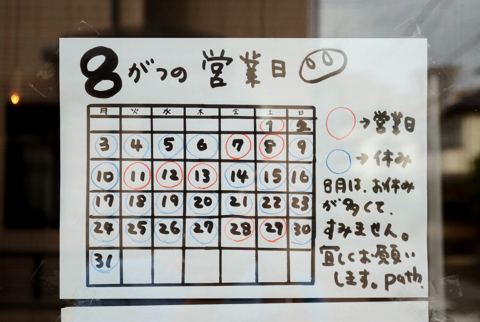 8がつの 営業日
月 火 水 木 金 土 日
1 2
3 4 5 6 7 8 9
10 11 12 13 14 15 16
17 18 19 20 21 22 23
24 25 26 27 28 29 30
31
→営業日
→休み
8月は、お休み
が多くて、
すみません。
宜しくお願い
します。path.